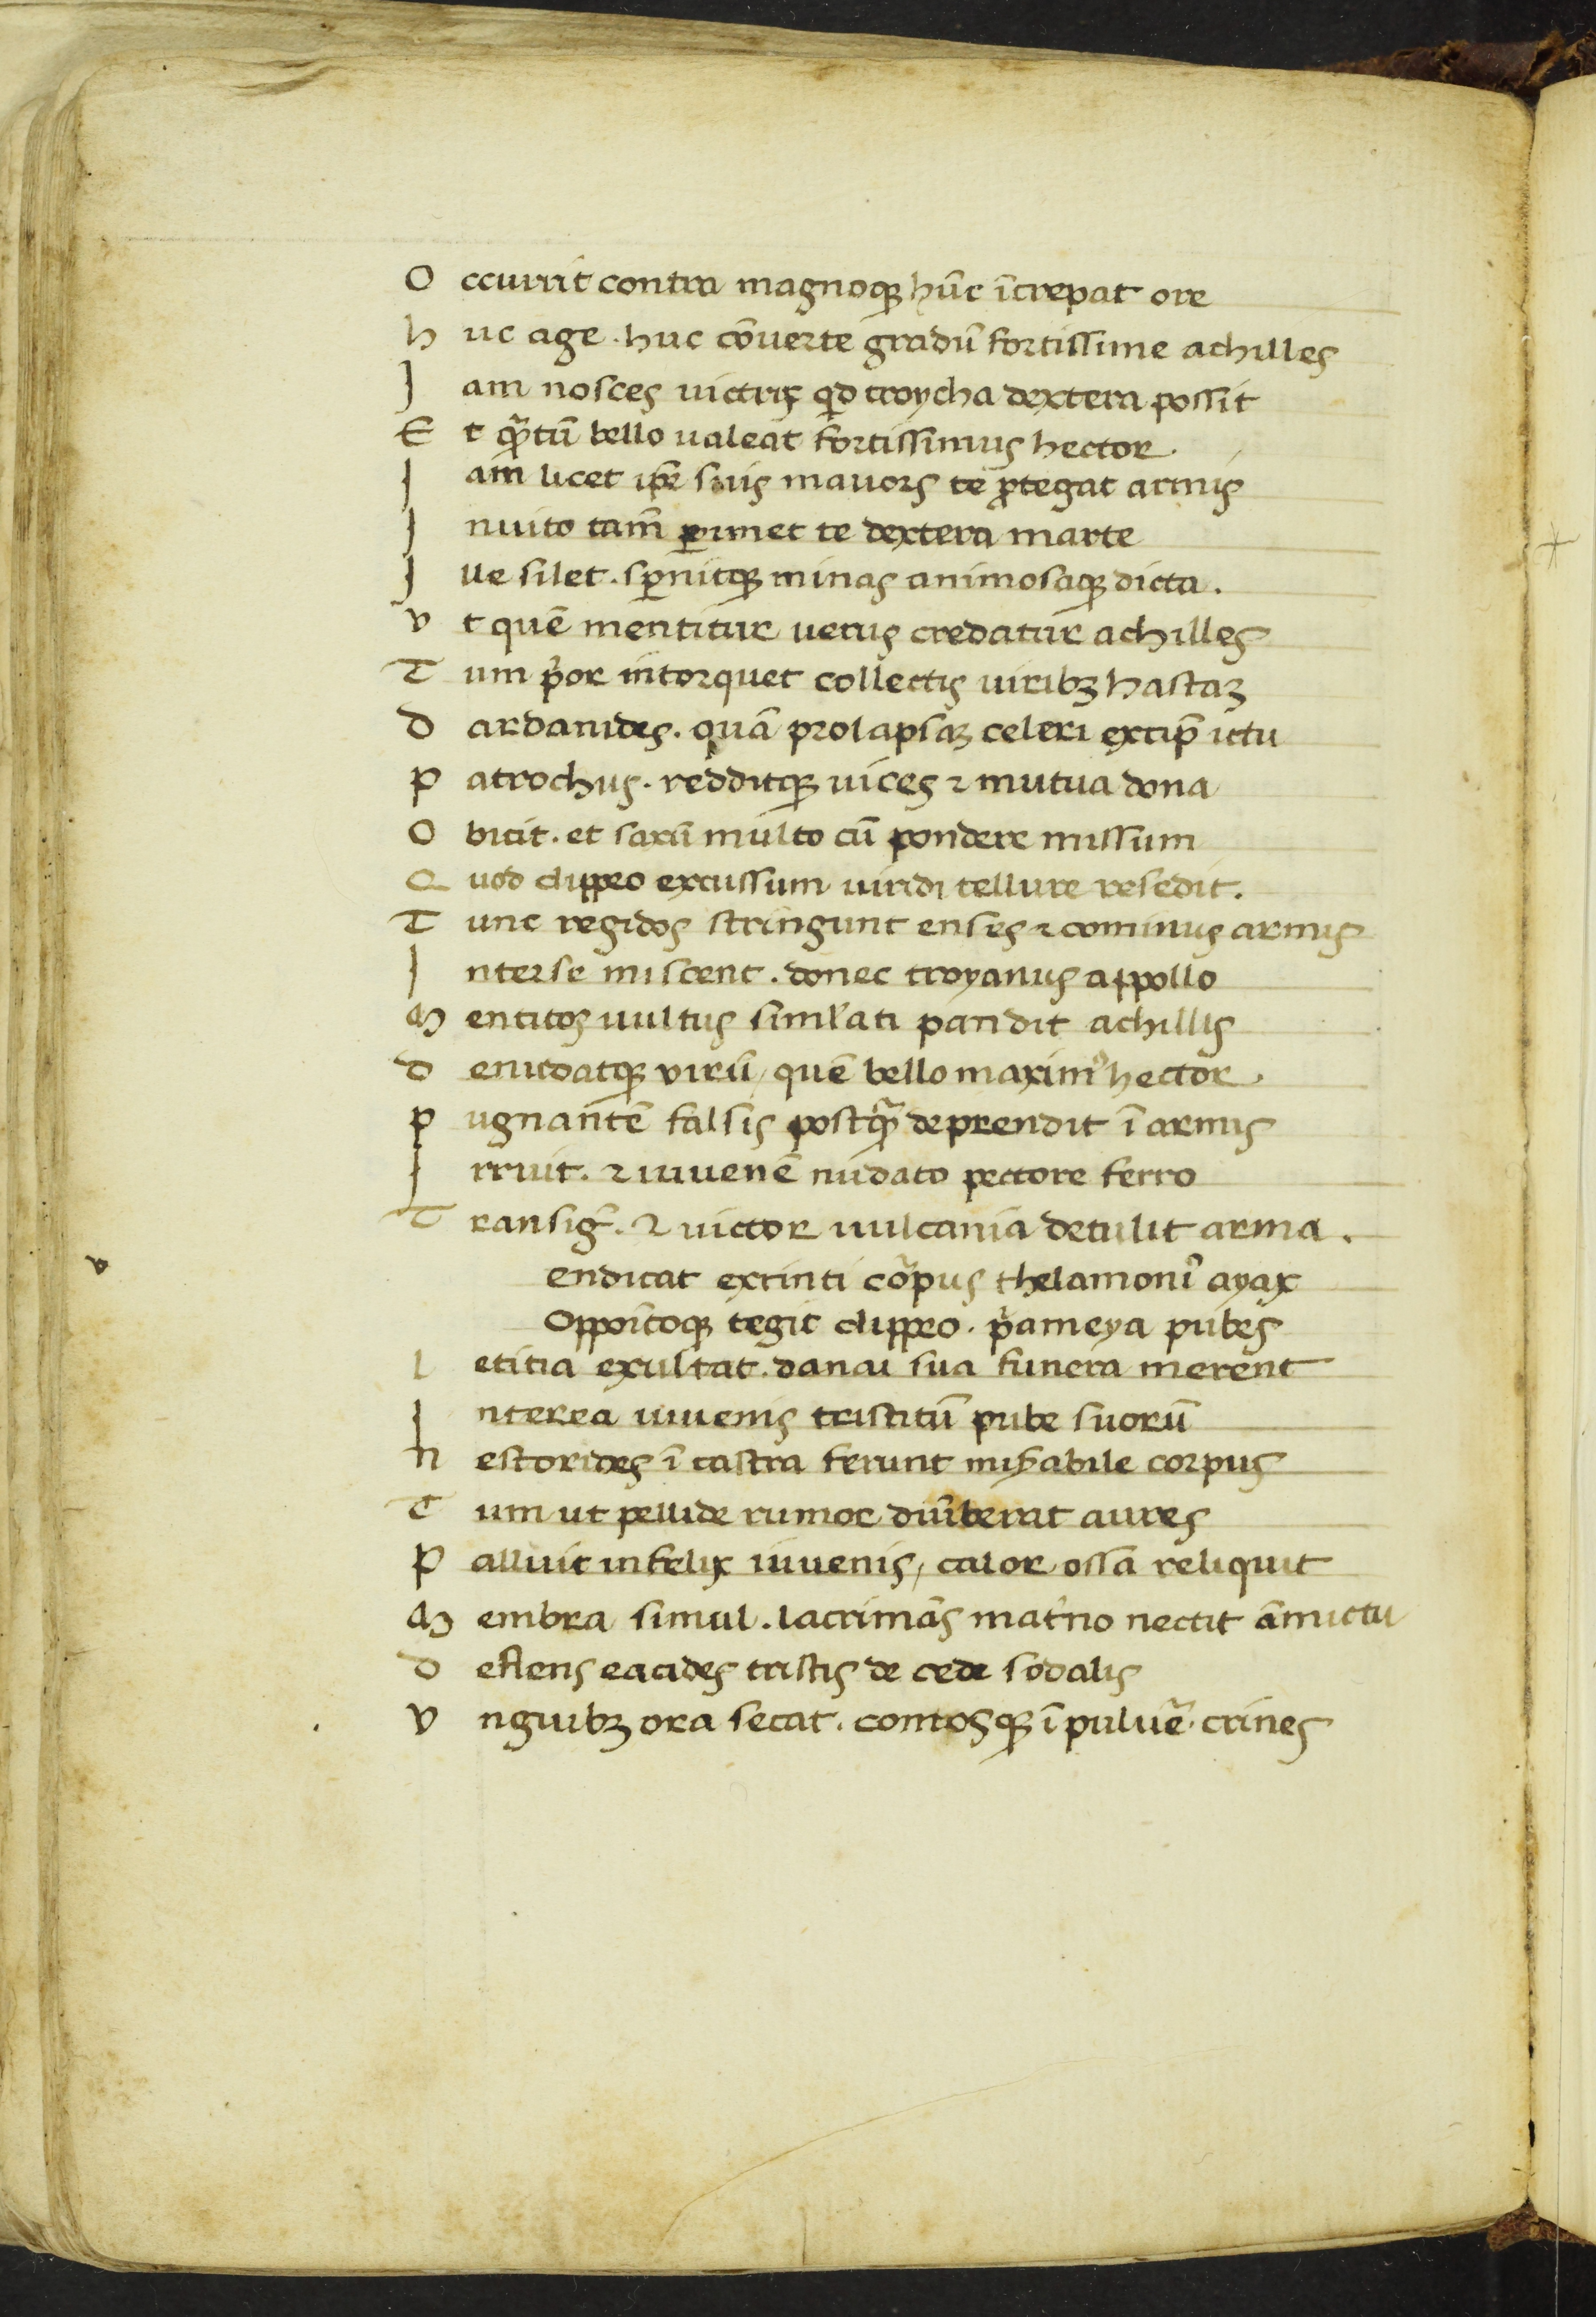 O ccurrit contra magnoqꝫ hūc īcrepat ore
h uc age . huc cōuerte gradū fortissime achilles
J am nosces uictrix qͥd troycha dextera possit
E t qͣ̄tū bello ualeat fortissimus hector .
J am licet ip̄e suis mauors te ꝓtegat armis
J nuito tam̄ ꝑimet te dextera marte
J lle silet . sꝑnitqꝫ minas animosaqꝫ dicta .
v t quē mentitur uerus credatur achilles
T um pͥor intorquet collectis uiribꝫ hastaꝫ
D ardanides . quā prolapsaꝫ celeri excip̄ ictu
P atrochus . redditqꝫ uices ⁊ mutua dona
O bicit . et saxū multo cū pondere missum
Q uod clippeo excussum uiridi tellure resedit .
T unc regidos stringunt enses ⁊ cominus armis
I nterse miscent . donec troyanus appollo
M entitos uultus simul̓ati pandit achillis
D enudatqꝫ virū / quē bello maximꝰ hector .
P ugnantē falsis postqͣ̄ deprendit ī armis
I rruit . ⁊ iuuenē nudato pectore ferro
T ransigͥ . ⁊ uictor uulcania detulit arma .
v endicat extinti corpus thelamoniꝰ ayax
Oppoītoqꝫ tegit clippeo . pͥameya pubes
l etitia exultat . danai sua funera merent
I nterea iuuenis tristitū pube suorū
N estorides ī castra ferunt mis̄abile corpus
T um ut pellide rumor diūberat aures
P alluit infelix iuuenis / calor ossa reliquit
M embra simul . lacrimās mat̓no nectit āmictu
D eflens eacides tristis de cede sodalis
V nguibꝫ ora secat . comtosqꝫ ī puluē . crines